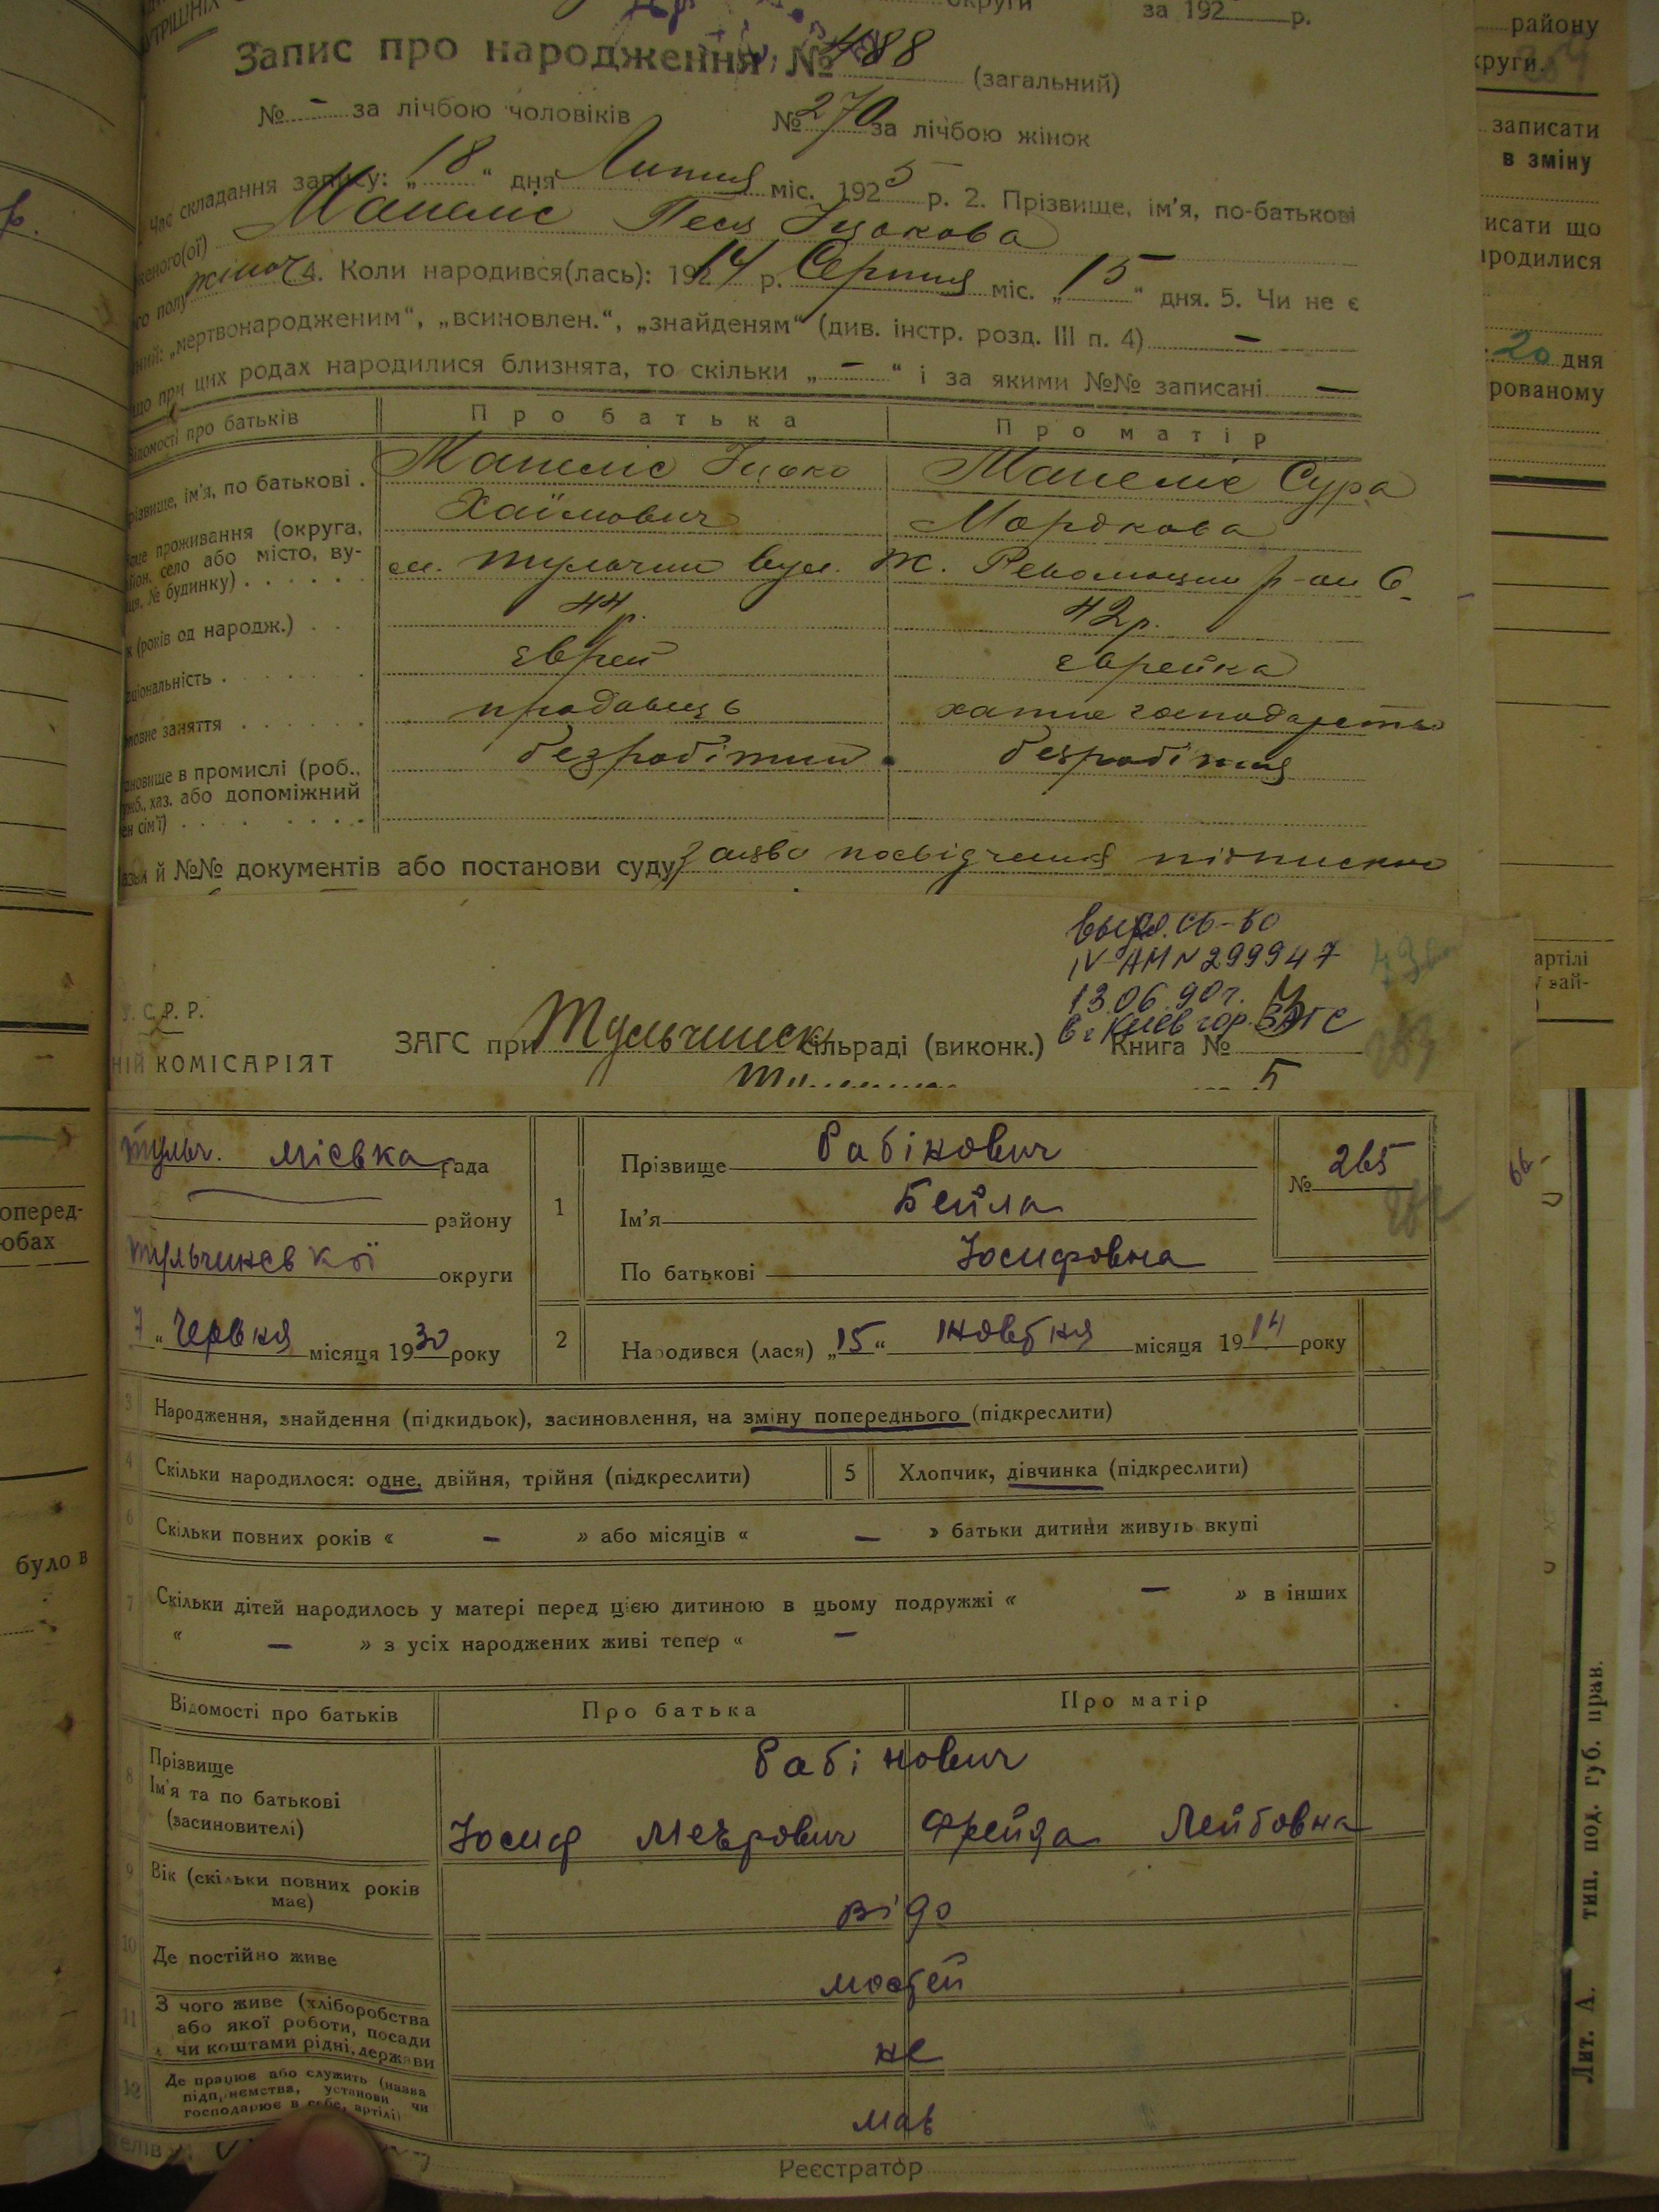 округи за 192 р.
Запис про народження, № 488 (загальний)
№ - за лічбою чоловіків № 270 за лічбою жінок
Час складання запису: „18“ дня Липня міс. 1925 р. 2. Прізвище, ім'я, по-батькові
женого(ої) Песя Іцокова
го полу жіноч 4. Коли народився(лась): 1914 р. Серпня міс. „15“ дня. 5. Чи не є
ний: „мертвонародженим“, „всиновлен.“, „знайденям“ (див. інстр. розд. III п. 4) —
що при цих родах народилися близнята, то скільки „—“ і за якими №№ записані —
Відомості про батьків Про батька Про матір
різвище, ім'я, по батькові . Іцоко Сура
Хаїмович Мордкова
проживання (округа,
село або місто, ву-
№ будинку) . . . . . м. Тульчин вул. Ж. Революции
(років од народж.) . . 44 р. 42 р.
ціональність . єврей єврейка
заняття продавець хатнє господарство
ановище в промислі (роб.,
хаз. або допоміжний
сім'ї) безробітний безробітня
й №№ документів або постанови суду посвідчення підпискою
выд. св-во
IV-АМ N 299947
13.06.90г.
в г Киев гор. ЗАГС
У. С. Р. Р.
НІЙ КОМІСАРІЯТ
ЗАГС при Тульчинск сільраді (виконк.) Книга №
5
Тульч. міська рада
району
Тульчинської округи
7 „ Червня місяця 1930 року
1 Прізвище Рабінович
Ім'я Бейла
По батькові Йосифовна
№ 265
2 Народився (лася) „15“ місяця 1914 року
3 Народження, знайдення (підкидьок), засиновлення, на зміну попереднього (підкреслити)
4 Скільки народилося: одне, двійня, трійня (підкреслити) 5 Хлопчик, дівчинка (підкреслити)
6 Скільки повних років « — » або місяців « — » батьки дитини живуть вкупі
7 Скільки дітей народилось у матері перед цією дитиною в цьому подружжі « — » в інших
« — » з усіх народжених живі тепер « —
Відомості про батьків Про батька Про матір
8 Прізвище Рабінович
Ім'я та по батькові
(засиновителі) Йосиф Меєрович Фрейда Лейбовна
9 Вік (скільки повних років
має) відо
10 Де постійно живе мостей
11 З чого живе (хліборобства
або якої роботи, посади
чи коштами рідні, держави не
12 Де працює або служить (назва
підприємства, установи чи
господарює в себе, артілі) має
Реєстратор
району
круги.
записати
в зміну
исати що
родилися
20 дня
рованому
артілі
зай-
оперед-
юбах
було в
Лит. А. тип. под. губ. прав.